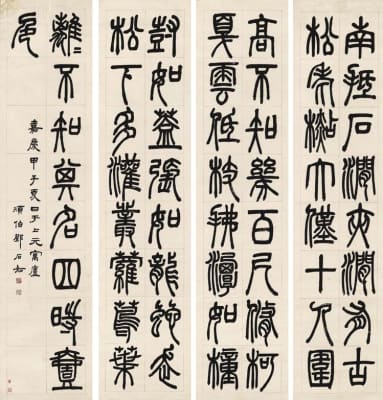 南抵石澗夾澗有古
松老檆大僅十人圍
高不知幾百尺脩柯
戛雲低枝拂潭如橦
尌如蓋張如龍蛇走
松下多灌叢蘿蔦葉
離〻不知其名四時壹
色
嘉慶甲子夏日于上元寓廬
頑伯鄧石如